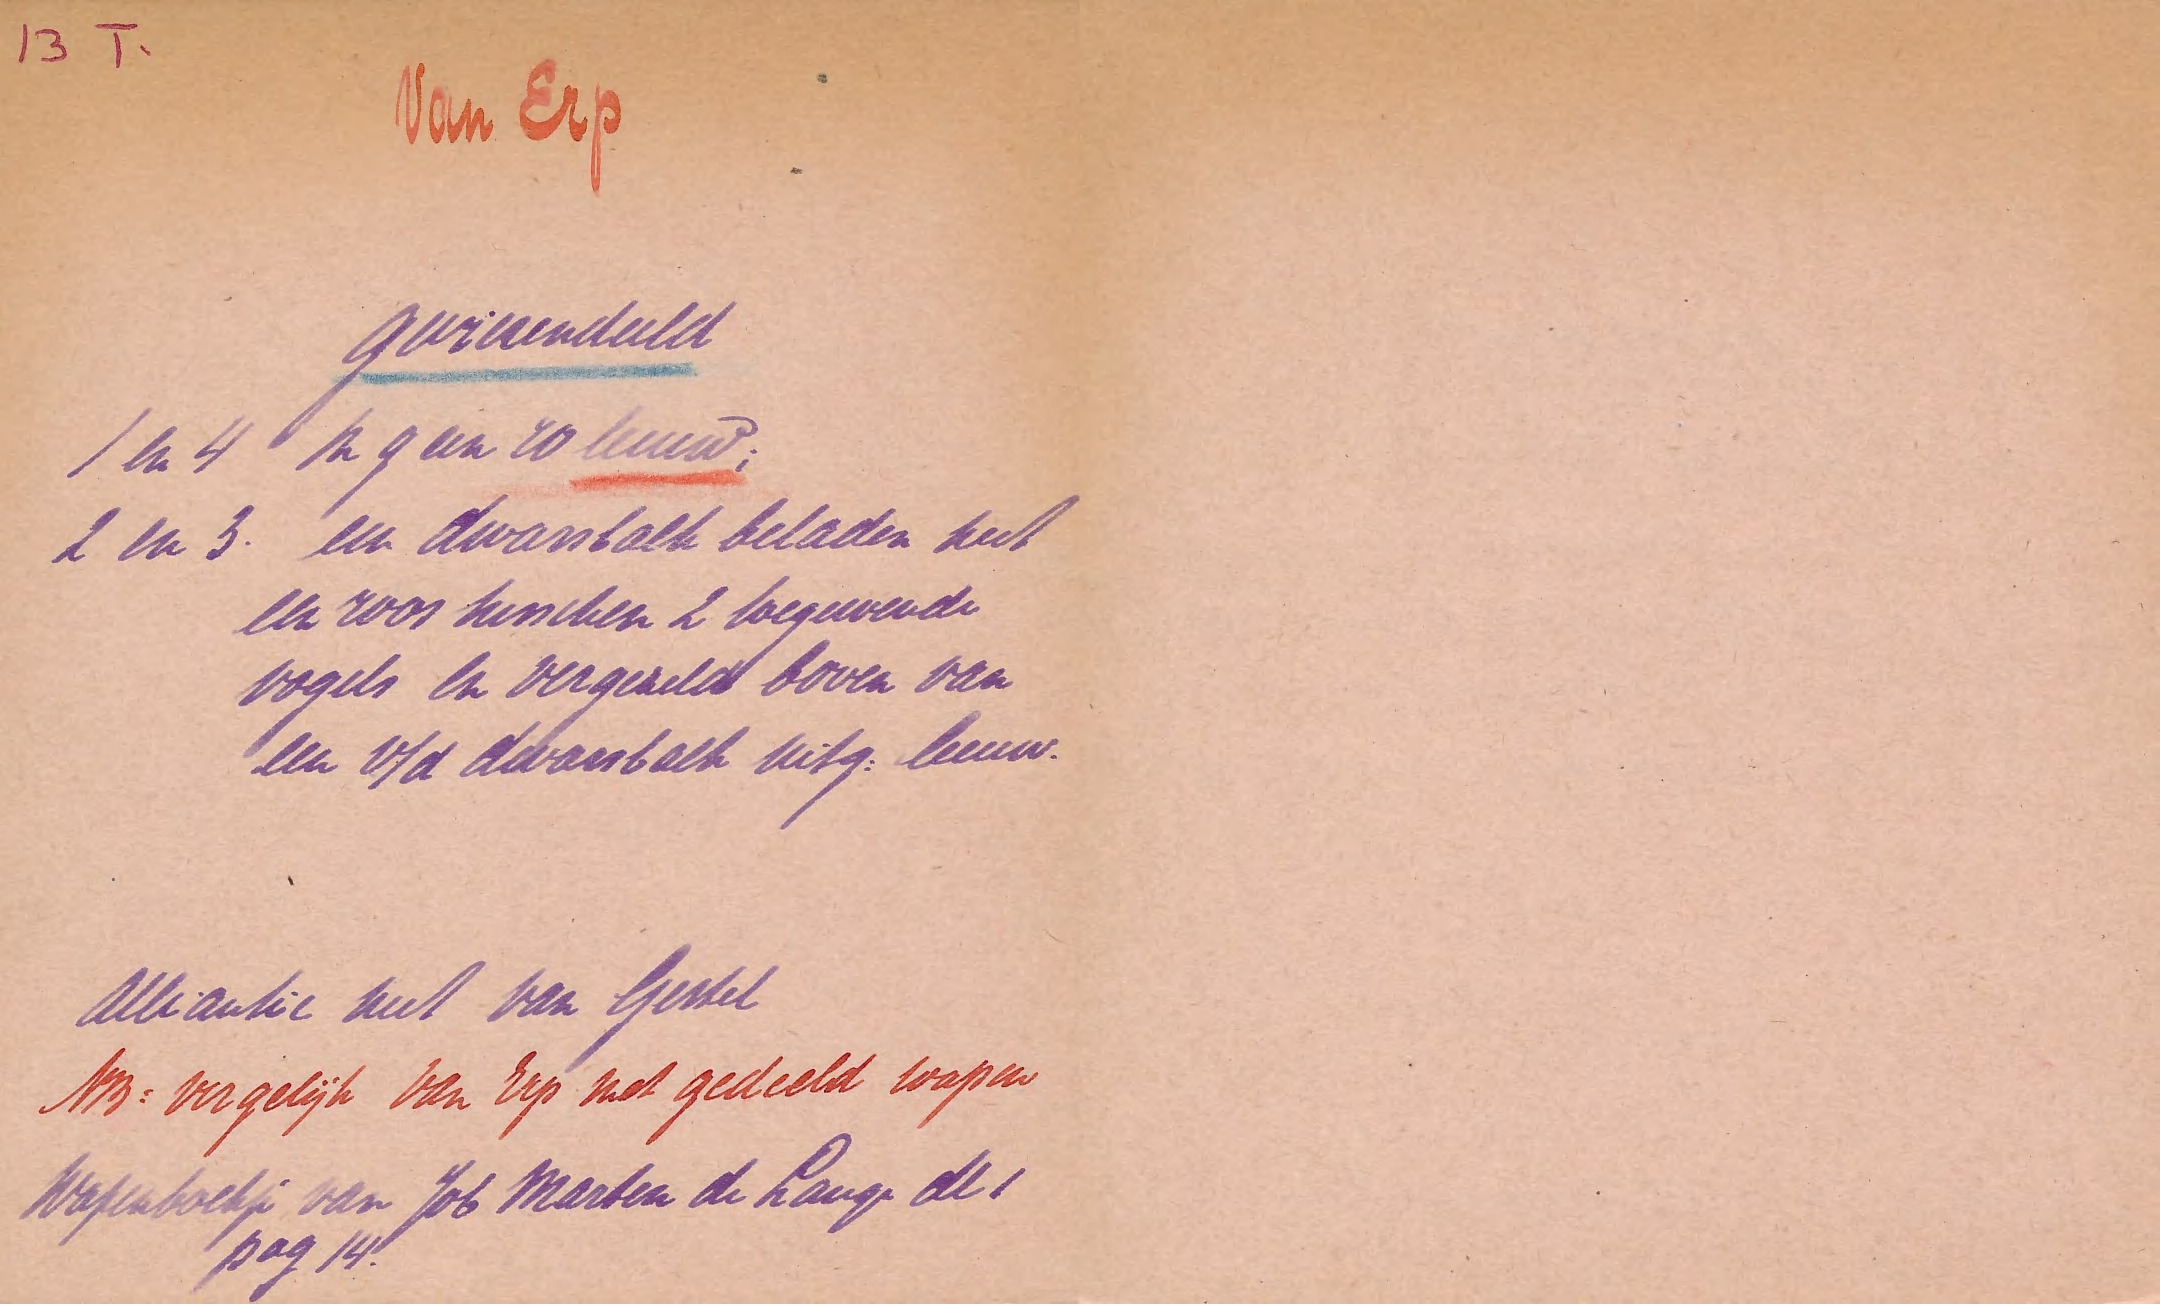 13 T.
Van Erp
gevierendeeld
1 en 4 In g een ro leeuw;
2 en 3. een dwarsbalk beladen met
een roos tusschen 2 toegewende
vogels en vergezeld boven van
een v/d dwarsbalk uitg: leeuw.
Alliantie met van Gestel
NB: vergelijk van Erp met gedeeld wapen
Wapenboekje van Job Marten de Lange dl 1
pag 14.